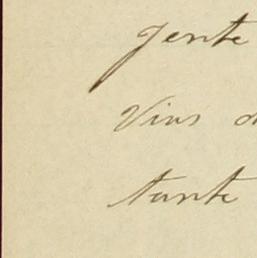 gente
Vins d
tante